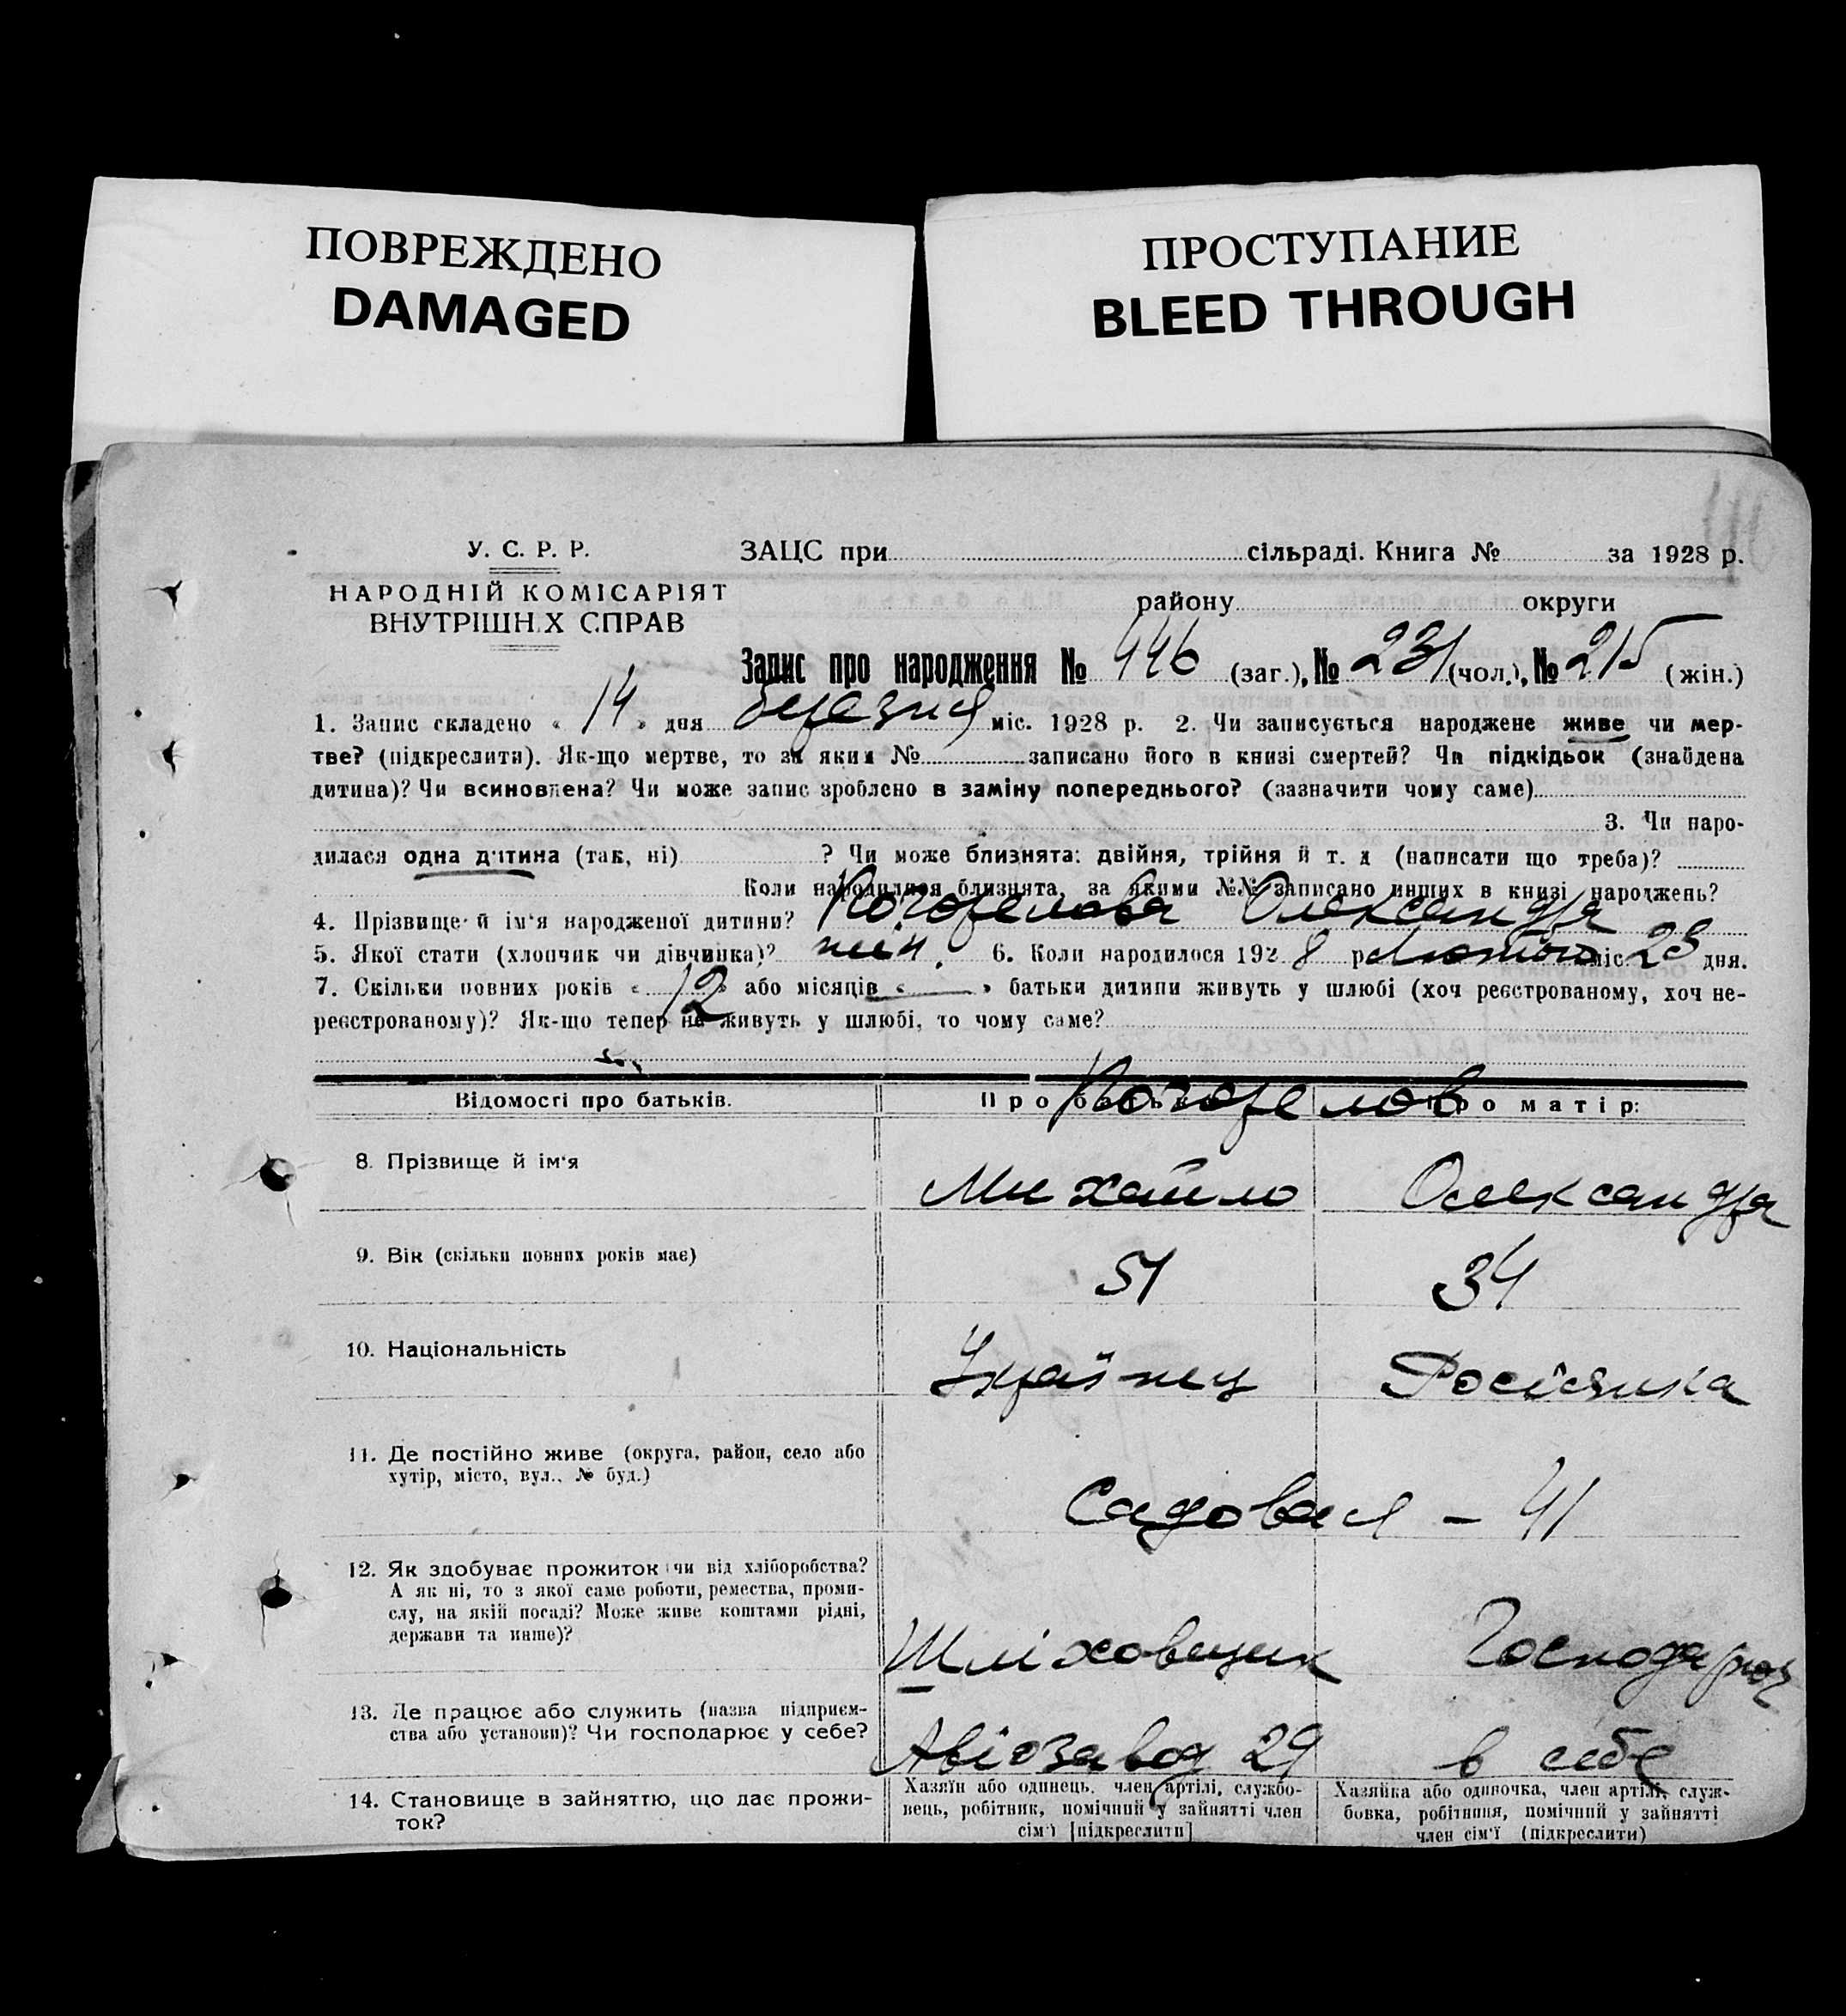 ПОВРЕЖДЕНО
DAMAGED
ПРОСТУПАНИЕ
BLEED THROUGH
У. С. Р. Р.
НАРОДНІЙ КОМІСАРІЯТ
ВНУТРІШНІХ СПРАВ
ЗАЦС при сільраді. Книга № за 1928 р.
району округи
Запис про народження № 446 (заг.), № 231 (чол.), № 215 (жін.)
1. Запис складено « 14 » дня березня міс. 1928 р. 2. Чи записується народжене живе чи мер-
тве? (підкреслити). Як-що мертве, то за яким № записано його в книзі смертей? Чи підкідьок (знайдена
дитина)? Чи всиновлена? Чи може запис зроблено в заміну попереднього? (зазначити чому саме)
3. Чи наро-
дилася одна дитина (так, ні) ? Чи може близнята: двійня, трійня й т. д (написати що треба)?
Коли народилися близнята, за якими №№ записано инших в книзі народжень?
4. Прізвище й ім'я народженої дитини? Погорелова Олександра
5. Якої стати (хлопчик чи дівчинка)? жін. 6. Коли народилося 192 8 р лютого міс. 23 дня.
7. Скільки повних років « 12 » або місяців « — » батьки дитини живуть у шлюбі (хоч реєстрованому, хоч не-
реєстрованому)? Як-що тепер не живуть у шлюбі, то чому саме?
Відомості про батьків. Про батька: Про матір:
Погорелов
8. Прізвище й ім'я Михайло Олександра
9. Вік (скільки повних років має) 51 34
10. Національність Українец Росіянка
11. Де постійно живе (округа, район, село або
хутір, місто, вул., № буд.)
Садовая – 41
12. Як здобуває прожиток чи від хліборобства?
А як ні, то з якої саме роботи, ремества, проми-
слу, на якій посаді? Може живе коштами рідні,
держави та инше)?
Шліховщик
13. Де працює або служить (назва підприєм-
ства або установи)? Чи господарює у себе?
Авіозавод 29 в себе
14. Становище в зайняттю, що дає прожи-
ток?
Хазяїн або одинець, член артілі, службо-
вець, робітник, помічний у зайнятті член
сім'ї [підкреслити]
Хазяйка або одиночка, член артілі, служ-
бовка, робітниця, помічний у зайнятті
член сім'ї (підкреслити)